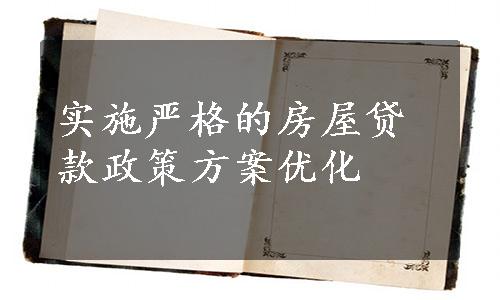 实施严格的房屋贷
款政策方案优化